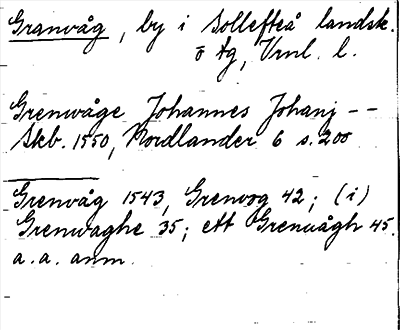 Granvåg, by i Sollefteå landsk.
o tg, Vrnl. l.
Grenwåge Johannes Johanj --
Skb. 1550, Nordlander 6 s. 200
Grenvåg 1543, Grenvog 42; (i)
Grenwaghe 35; ett Grenwågh 45.
a. a. anm.